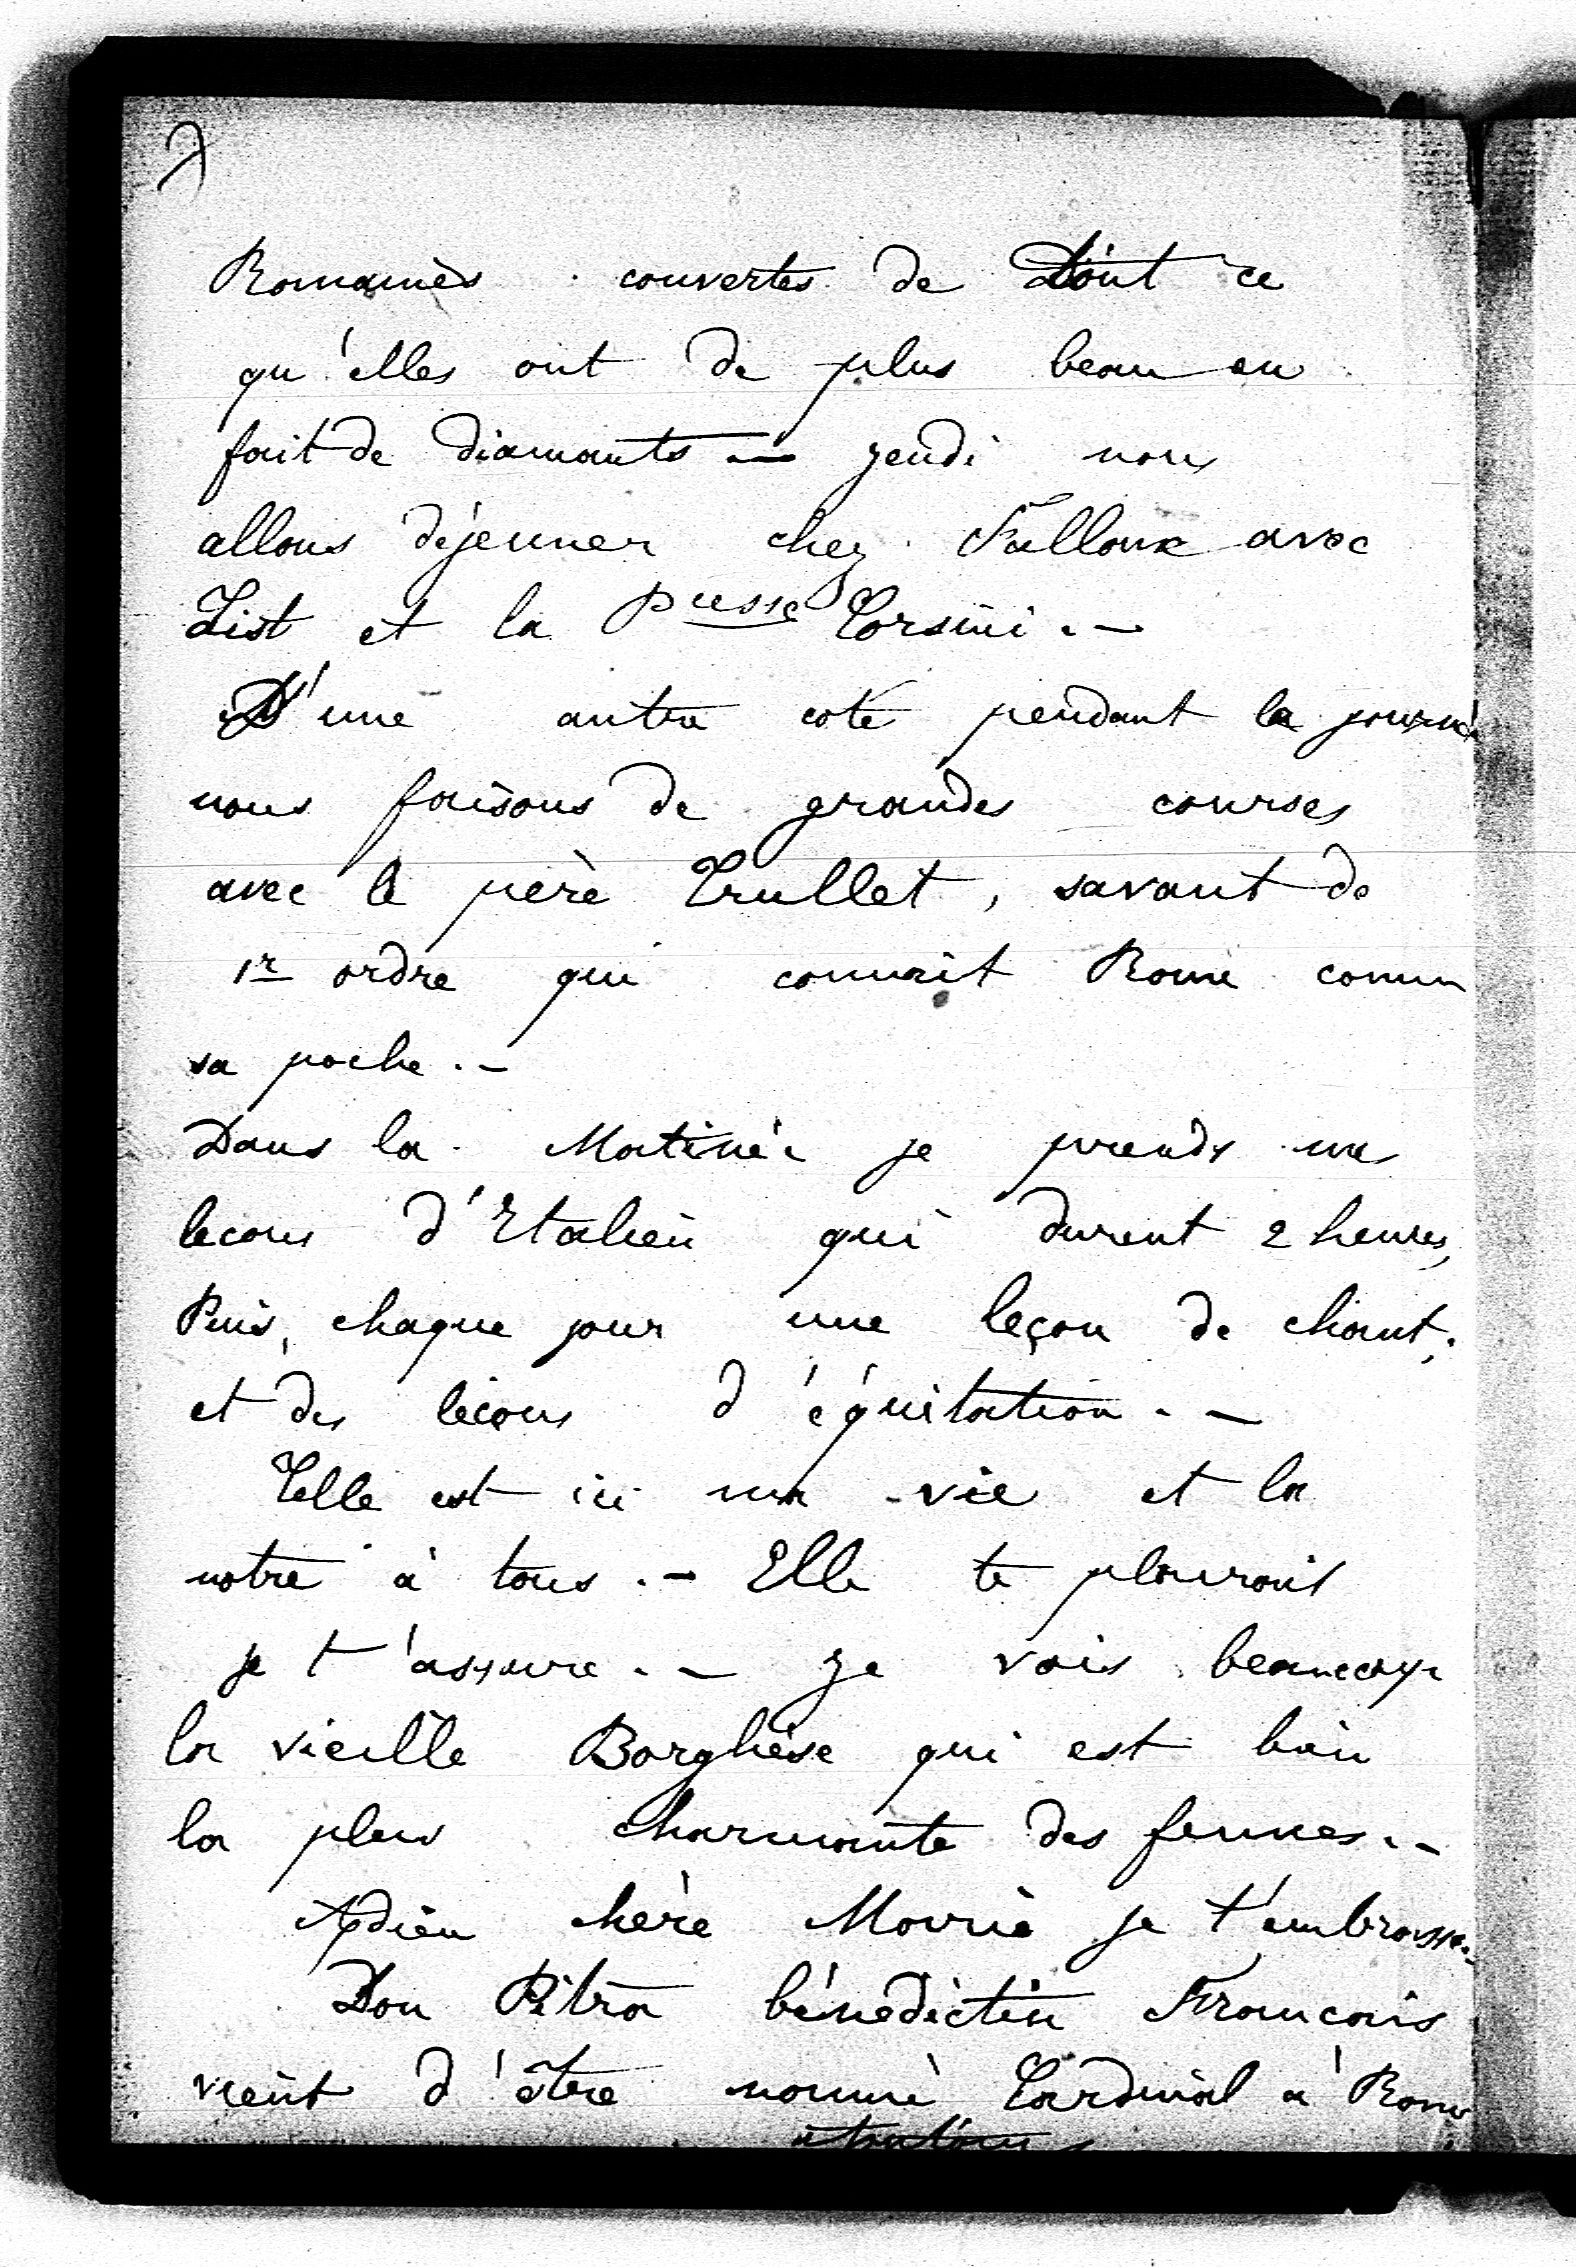 7
Romaines couvertes de tout ce
qu'elles ont de plus beau en
fait de diamants — jeudi nous
allons déjeuner chez Falloux avec
List et la Pcesse Corsini . —
D'une autre coté pendant la journée
nous faisons de grandes courses
avec le père Trullet , savant de
1r ordre qui connait Rome comme
sa poche . —
Dans la Matinée je prends une
lecons d'Italien qui durent 2 heures,
Puis, chaque jour une leçon de chant,
et des leçons d'équitation . —
Telle est ici ma vie et la
notre à tous . — Elle te plairait
je t'assure . — Je vois beaucoup
la vieille Borghèse qui est bien
la plus charmante des femmes . —
Adieu chère Marie je t'embrasse . —
Don Pitra bénédictin Francais
vient d'être nommé Cardinal à Rome